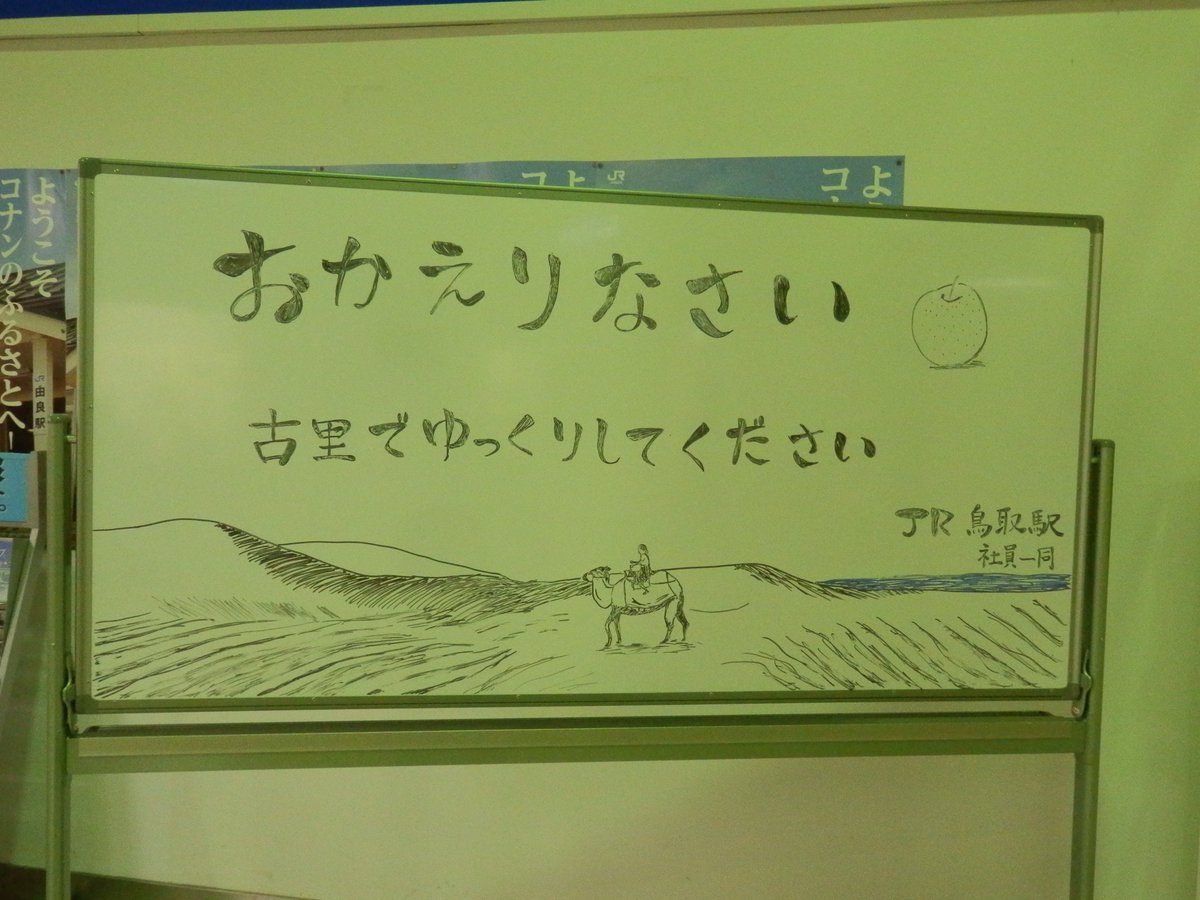 おかえりなさい
古里でゆっくりしてください
JR 鳥取駅
社員一同
ようこそ
コナンのふるさとへ
由良駅
JR
よ
コ
よ
コ